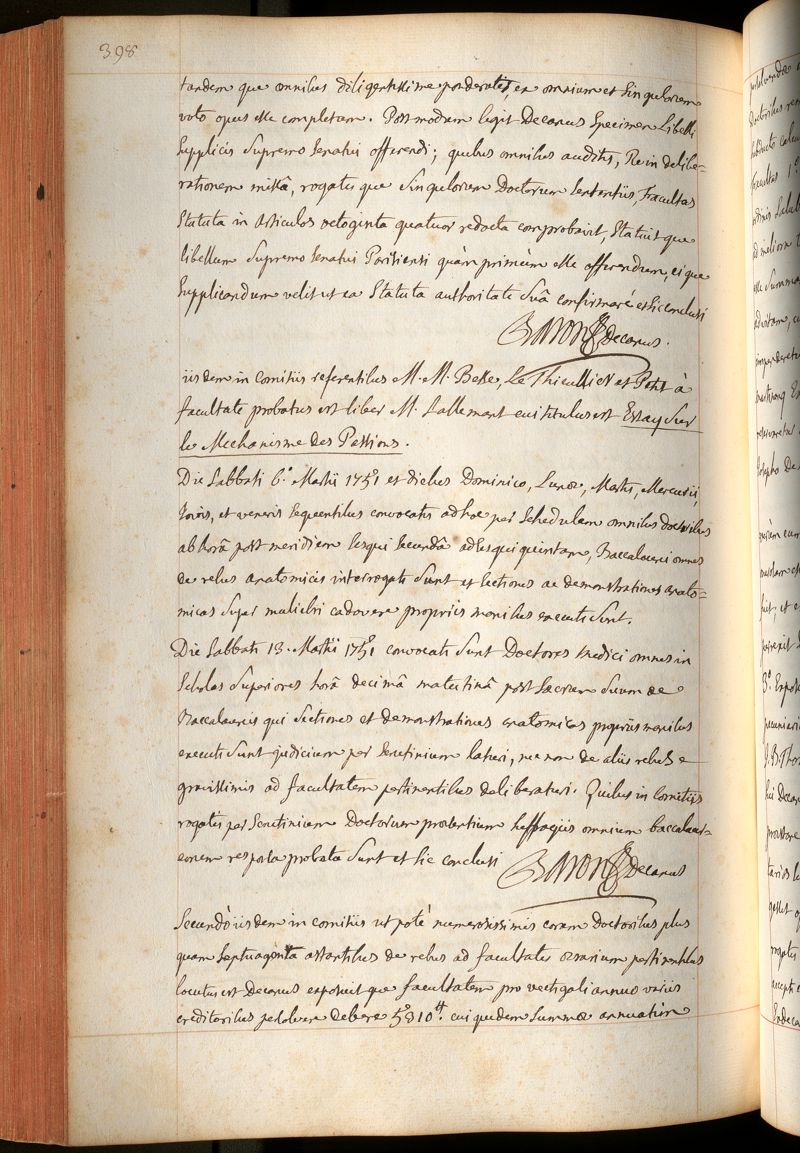 398
tandem que omnibus diligentissime ponderatis, ex omnium et singulorum
voto opus esse completum. Postmodum legit Decanus Specimen Libelli
supplicis supremo senatui offerendi; quibus omnibus auditis, Re in delibe-
rationem missâ, rogatis que singulorum Doctorum sententiis, Facultas
statuta in articulos octoginta quatuor redacta comprobavit, statuit que
libellum supremo senatui Parisiensi quàm primùm esse offerendum, ei que
supplicandum velit ut ea statuta authoritate suâ confirmare et sic conclusi
Baron Decanus.
iisdem in comitiis referentibus M. M. Besse, Le Thieullier et Petit à
facultate probatus est liber M. Lallemant cui titulus est Essay sur
le Mechanisme des Passions.
Die sabbati 6.a Martii 1751 et diebus Dominico, Lunæ, Martis, Mercurii,
Jovis, et veneris sequentibus convocatis ad hoc per schedulam omnibus doctoribus
ab horâ post meridiem sesqui secundâ ad sesqui quintam, Baccalaurei omnes
de rebus anatomicis interrogati sunt et sectiones ac demonstrationes anato-
micas super muliebri cadavere propriis manibus executi sunt.
Die sabbati 13. Martii 1751 convocati sunt Doctores medici omnes in
scholas superiores horâ decimâ matutinâ post sacrum suum de
Baccalaureis qui sectiones et demonstrationes anatomicas propriis manibus
executi sunt judicium per scrutinium laturi, nec non de aliis rebus
gravissimis ad facultatem pertinentibus deliberaturi. Quibus in comitiis
rogatis per scrutinium Doctorum præsentium suffragiis omnium baccalaur-
eorum responsa probata sunt et sic conclusi
Baron Decanus
Secundò iisdem in comitiis utpotè numerosissimis coram Doctoribus plus
quam septuaginta astantibus de rebus ad facultatis ærarium pertinentibus
locutus est Decanus exposuit que facultatem pro vectigali annuo variis
creditoribus persolvere debere 5310 tt. cui quidem summæ annuatim